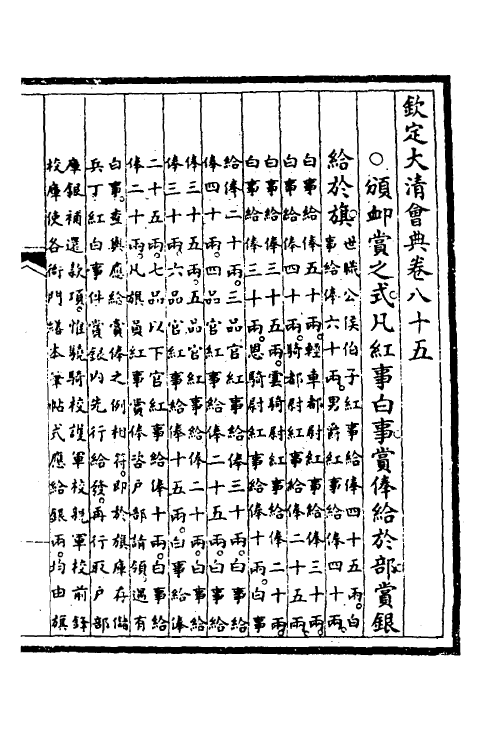 欽定大清會典卷八十五
○頒䘏賞之式。凡紅事白事賞俸給於部。賞銀
給於旗。世職公侯伯子紅事給俸四十五兩。白
事給俸六十兩。男爵紅事給俸四十兩。
白事給俸五十兩。輕車都尉紅事給俸三十兩。
白事給俸四十兩。騎都尉紅事給俸二十五兩。
白事給俸三十五兩。雲騎尉紅事給俸二十兩。
白事給俸三十兩。恩騎尉紅事給俸十兩。白事
給俸二十兩。三品官紅事給俸三十兩。白事給
俸四十兩。四品官紅事給俸二十五兩。白事給
俸三十五兩。五品官紅事給俸二十兩。白事給
俸三十兩。六品官紅事給俸十五兩。白事給俸
二十五兩。七品以下官紅事給俸十兩。白事給
俸二十兩。凡旗員紅事賞俸咨戶部請領。遇有
白事。查與應給賞俸之例相符。即於旗庫存借
兵丁紅白事件賞銀內先行給發。再行取戶部
庫銀補還款項。惟驍騎校護軍校親軍校前鋒
校庫使各衙門繕本筆帖式應給銀兩。均由旗